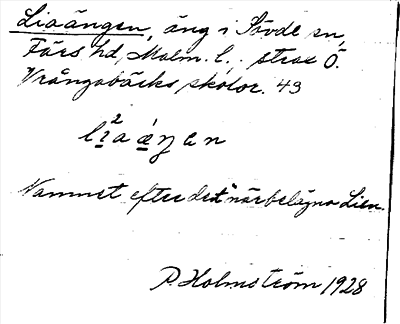 Liaängen, äng i Sövde sn,
Färs hd, Malm. l., strax Ö.
Vrångabäcks skolor. 43
lı²aäŋen
Namnet efter det närbelägna Lien.
P. Holmström 1928